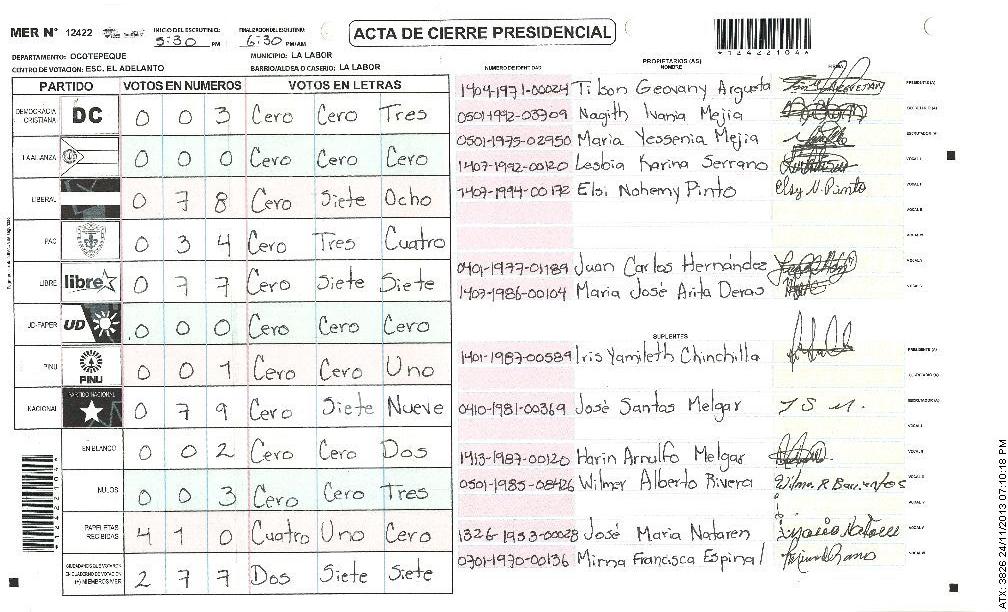 MER N° 12422
INICIO DEL ESCRUTINIO: 5:30 PM
FINALIZACION DEL ESCRUTINIO: 6:30 PM/AM
ACTA DE CIERRE PRESIDENCIAL
*12422104*
DEPARTAMENTO: OCOTEPEQUE
MUNICIPIO: LA LABOR
CENTRO DE VOTACION: ESC. EL ADELANTO
BARRIO/ALDEA O CASERIO: LA LABOR
PARTIDO VOTOS EN NUMEROS VOTOS EN LETRAS
DEMOCRACIA CRISTIANA DC 0 0 3 Cero Cero Tres
LA ALIANZA 0 0 0 Cero Cero Cero
LIBERAL 0 7 8 Cero Siete Ocho
PAC 0 3 4 Cero Tres Cuatro
LIBRE libre 0 7 7 Cero Siete Siete
UD-FAPER UD 0 0 0 Cero Cero Cero
PINU PINU 0 0 1 Cero Cero Uno
NACIONAL PARTIDO NACIONAL 0 7 9 Cero Siete Nueve
EN BLANCO 0 0 2 Cero Cero Dos
NULOS 0 0 3 Cero Cero Tres
PAPELETAS RECIBIDAS 4 1 0 Cuatro Uno Cero
2 7 7 Dos Siete Siete
PROPIETARIOS (AS)
NUMERO DE IDENTIDAD NOMBRE FIRMA
1404-1971-00024 Tilson Geovany Argueta PRESIDENTE (A)
0501-1992-03909 Nagith Ivania Mejia
0501-1975-02950 Maria Yessenia Mejia ESCRUTADOR (A)
1407-1992-00120 Lesbia Karina Serrano VOCAL I
1407-1994-00172 Elsi Nohemy Pinto Elsy N. Pinto
0401-1977-01189 Juan Carlos Hernández
1407-1986-00104 Maria José Arita Deras
SUPLENTES
1401-1987-00589 Iris Yamileth Chinchilla PRESIDENTE (A)
0410-1981-00369 José Santos Melgar J S M.
1413-1987-00120 Harin Arnulfo Melgar
0501-1985-08426 Wilmer Alberto Rivera
1326-1953-00028 José Maria Nataren
0701-1970-00136 Mirna Francisca Espinal
ATX: 3826 24/11/2013 07:10:18 PM